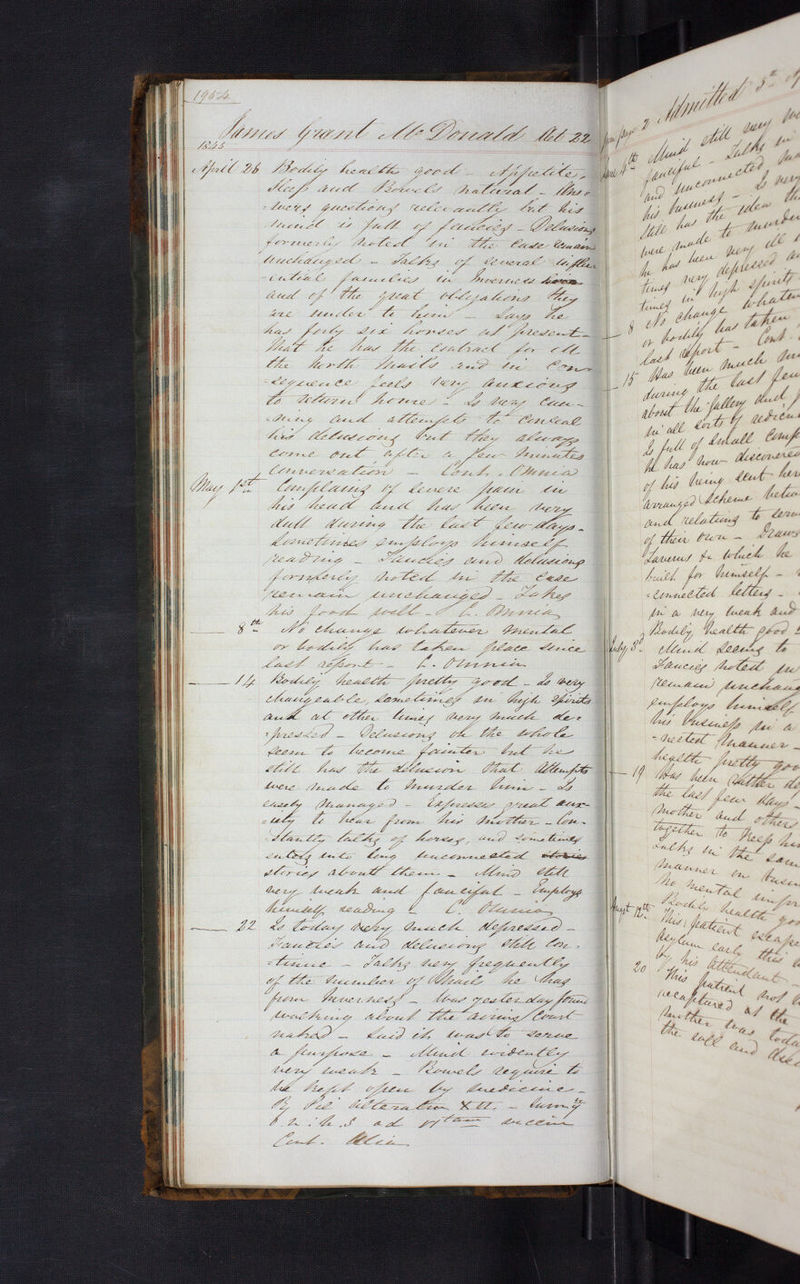 1954
James Grant McDonald Aet 22
1845
April 26 Bodily health good - Appetite,
Sleep and Bowels natural - Ans-
-wers questions relevantly but his
mind is full of fancies - Delusions
formerly noted in the Case remain
unchanged - Talks of several influ-
-ential families in Inverness
and of the great obligations they
are under to him - Says he
has forty six horses at present
that he has the contract for all
the North Mails and in con-
-sequence feels very anxious
to return home - Is very cun-
-ning and attempts to conceal
his delusions but they always
come out after a few minutes
conversation - Cont. Omnia
May 1st Complains of severe pain in
his head and has been very
dull during the last few days -
Sometimes employs himself
reading - Fancies and delusions
formerly noted in the case
remain unchanged - Takes
his food well - C. Omnia
8th No change whatever mental
or bodily has taken place since
last report - C. Omnia
14 Bodily health pretty good - Is very
changeable, sometimes in high spirits
and at other times very much de-
-pressed - Delusions on the whole
seem to become fainter but he
still has the delusion that attempts
were made to murder him - Is
easily managed - Expresses great anx-
-iety to hear from his mother - Con-
-stantly talks of horses, and sometimes
enters into long unconnected stories
stories about them - Mind still
very weak and fanciful - Employs
himself reading - C. Omnia
22 Is today very much depressed -
Fancies and delusions still con-
-tinue - Talks very frequently
of the number of Mails he has
from Inverness - Was yesterday found
walking about the airing Court
naked - Said it was to serve
a purpose - Mind evidently
very weak - Bowels require to
be kept open by medicine -
Cont. Alia
from page 2 Admitted 5th
June 4th Mind still very
fanciful - Talks in
and unconnected
his business - Is very
still has the idea
were made to murder
he has been very ill
times very depressed
times in high spirits
8 No change whatever
or bodily has taken
last report - Cont.
15 Has been much
during the last few
about the gallery
in all sorts of
Is full of small
he has now discovered
of his being sent here
arranged scheme
and relations to
of their own - Draws
Taverns &c which he
built for himself -
-connected letters -
in a very weak and
Bodily health good
July 3d Mind seems to
Fancies noted in
remain unchanged
employs himself
his business in a
-nected manner -
health pretty good
19 Has been rather
the last few days -
mother and others
together to keep him
Talks in the same
manner on
no mental
Bodily health
Augst 12th This patient escaped
Asylum early this
by his attendant -
20 This patient not
recaptured at the
mother was today
the roll and